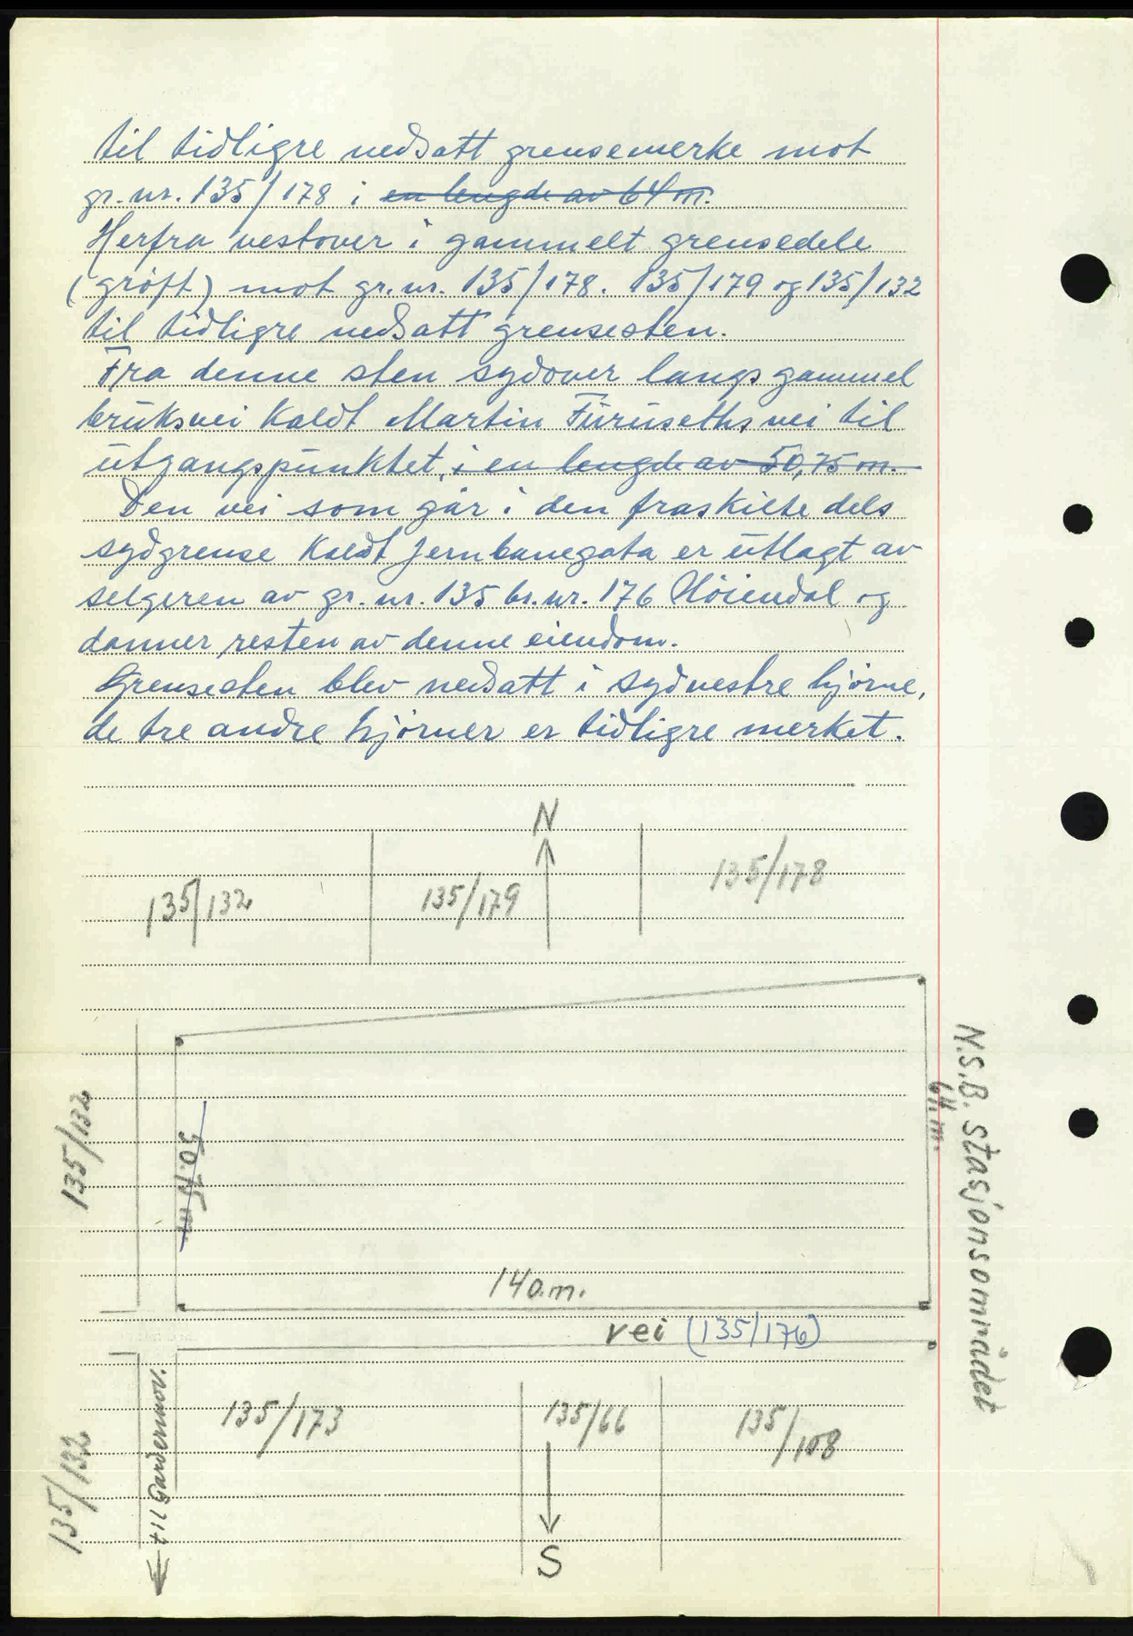 til tidligre nedsatt grensemerke mot
gr. nr. 135/178 i en lengde av 64 m.
Herfra vestover i gammelt grensedele
(grøft) mot gr. nr. 135/178. 135/179 og 135/132
til tidligre nedsatt grensesten.
Fra denne sten sydover langs gammel
bruksvei kaldt Martin Furuseths vei til
utgangspunktet, i en lengde av 50,75 m.
Den vei som går i den fraskilte dels
sydgrense kaldt Jernbanegata er utlagt av
selgeren av gr. nr. 135 br. nr. 176 Høiendal og
danner resten av denne eiendom.
Grensesten blev nedsatt i sydvestre hjørne,
de tre andre hjørner er tidligre merket.
N
135/132
135/179
135/178
135/132
50.75 m
64 m.
N.S.B. stasjonsområdet
140 m.
vei (135/176)
135/132
til Gardermov.
135/173
135/66
135/108
S